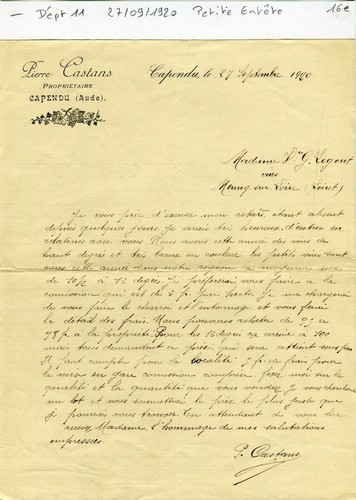 — Dépt 11 27/09/1920 Petite Entête 16€
Pierre Castans
PROPRIÉTAIRE
CAPENDU (Aude).
Capendu, le 27 Septembre 1920
Madame Vve G. Legout
vins
Meung sur Loire (Loiret)
Je vous prie d'excuser mon retard, étant absent
depuis quelques jours. Je serais très heureux d'entrer en
relations avec vous. Nous avons cette année des vins de
haut degrés et très beaux en couleur les petits vins sont
rares cette année dans notre région la moyenne sera de
10½ à 12 degrés. Je préfèrerai vous faire à la
commission qui est de 2 f par hecto. Je me chargerai
de vous faire le charroi et soutirage et vous ferai
le détail des frais. Nous pouvons acheter de 95 à
98 f. à la propriété. Pour les 12 degrés on arrive à 100
mais tous demandent ce prix, qui sera atteint sous peu
Il faut compter pour la localité 7 f. de frais pour
la mise en gare commission comprise. Fixez moi sur la
qualité et la quantité que vous voudrez. Je vous chercherai
un lot et vous soumettrai le prix le plus juste que
je pourrais vous trouver. En attendant de vous lire
recevez, Madame l'hommage de mes salutations
empressées
P. Castans